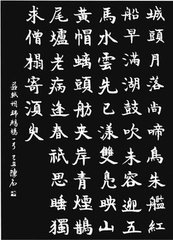 城頭月落尚啼烏朱艦紅
船早滿湖鼓吹未容迎五
馬水雲先已漾雙鳧映山
黃帽螭頭舫夾岸青煙鵲
尾爐老病逢春衹思睡獨
求僧榻寄須臾